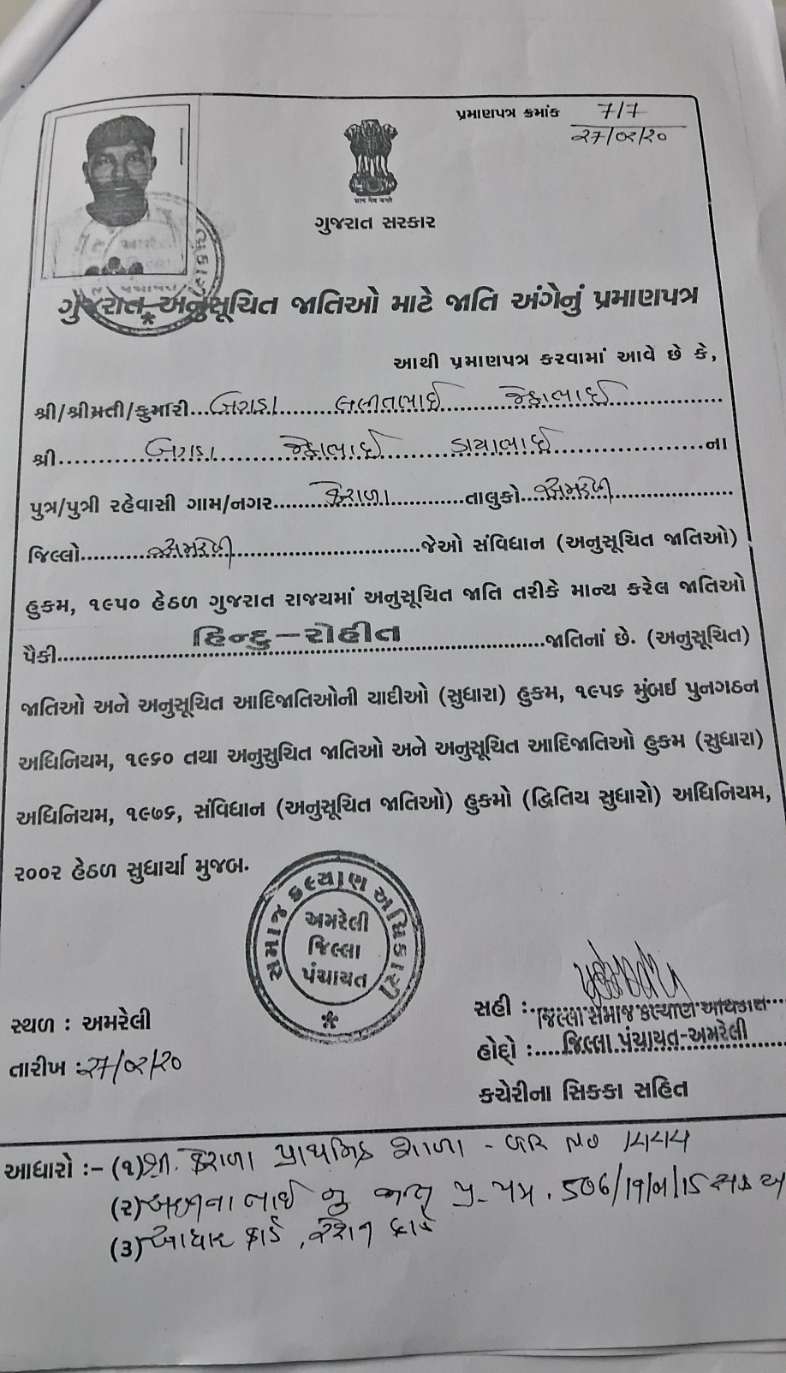 પ્રમાણપત્ર ક્રમાંક 7/7
૨7/૦૨/૨૦
ગુજરાત સરકાર
ગુજરાત અનુસૂચિત જાતિઓ માટે જાતિ અંગેનું પ્રમાણપત્ર
આથી પ્રમાણપત્ર કરવામાં આવે છે કે,
શ્રી/શ્રીમતી/કુમારી... બગડા લલીતભાઈ જેઠાભાઈ
શ્રી... બગડા જેઠાભાઈ ડાયાભાઈ ...ના
પુત્ર/પુત્રી રહેવાસી ગામ/નગર... કેરાળા ...તાલુકો... અમરેલી
જિલ્લો... અમરેલી ...જેઓ સંવિધાન (અનુસૂચિત જાતિઓ)
હુકમ, ૧૯૫૦ હેઠળ ગુજરાત રાજ્યમાં અનુસૂચિત જાતિ તરીકે માન્ય કરેલ જાતિઓ
પૈકી... હિન્દુ-રોહીત ...જાતિનાં છે. (અનુસૂચિત)
જાતિઓ અને અનુસૂચિત આદિજાતિઓની યાદીઓ (સુધારા) હુકમ, ૧૯૫૬ મુંબઈ પુનગઠન
અધિનિયમ, ૧૯૬૦ તથા અનુસુચિત જાતિઓ અને અનુસૂચિત આદિજાતિઓ હુકમ (સુધારા)
અધિનિયમ, ૧૯૭૬, સંવિધાન (અનુસૂચિત જાતિઓ) હુકમો (દ્વિતિય સુધારો) અધિનિયમ,
૨૦૦૨ હેઠળ સુધાર્યા મુજબ.
સમાજ કલ્યાણ અધિકારી
અમરેલી
જિલ્લા
પંચાયત
સ્થળ : અમરેલી
તારીખ : ૨7/૦૨/૨૦
સહી : જિલ્લા સમાજ કલ્યાણ અધિકારી
હોદ્દો : જિલ્લા પંચાયત-અમરેલી
કચેરીના સિક્કા સહિત
આધારો :- (૧) શ્રી. કેરાળા પ્રાથમિક શાળા - GR NO 1444
(૨) ભાઈ નુ પ્ર-પત્ર. 506/19/01/15
(૩) આધાર કાર્ડ, રેશન કાર્ડ